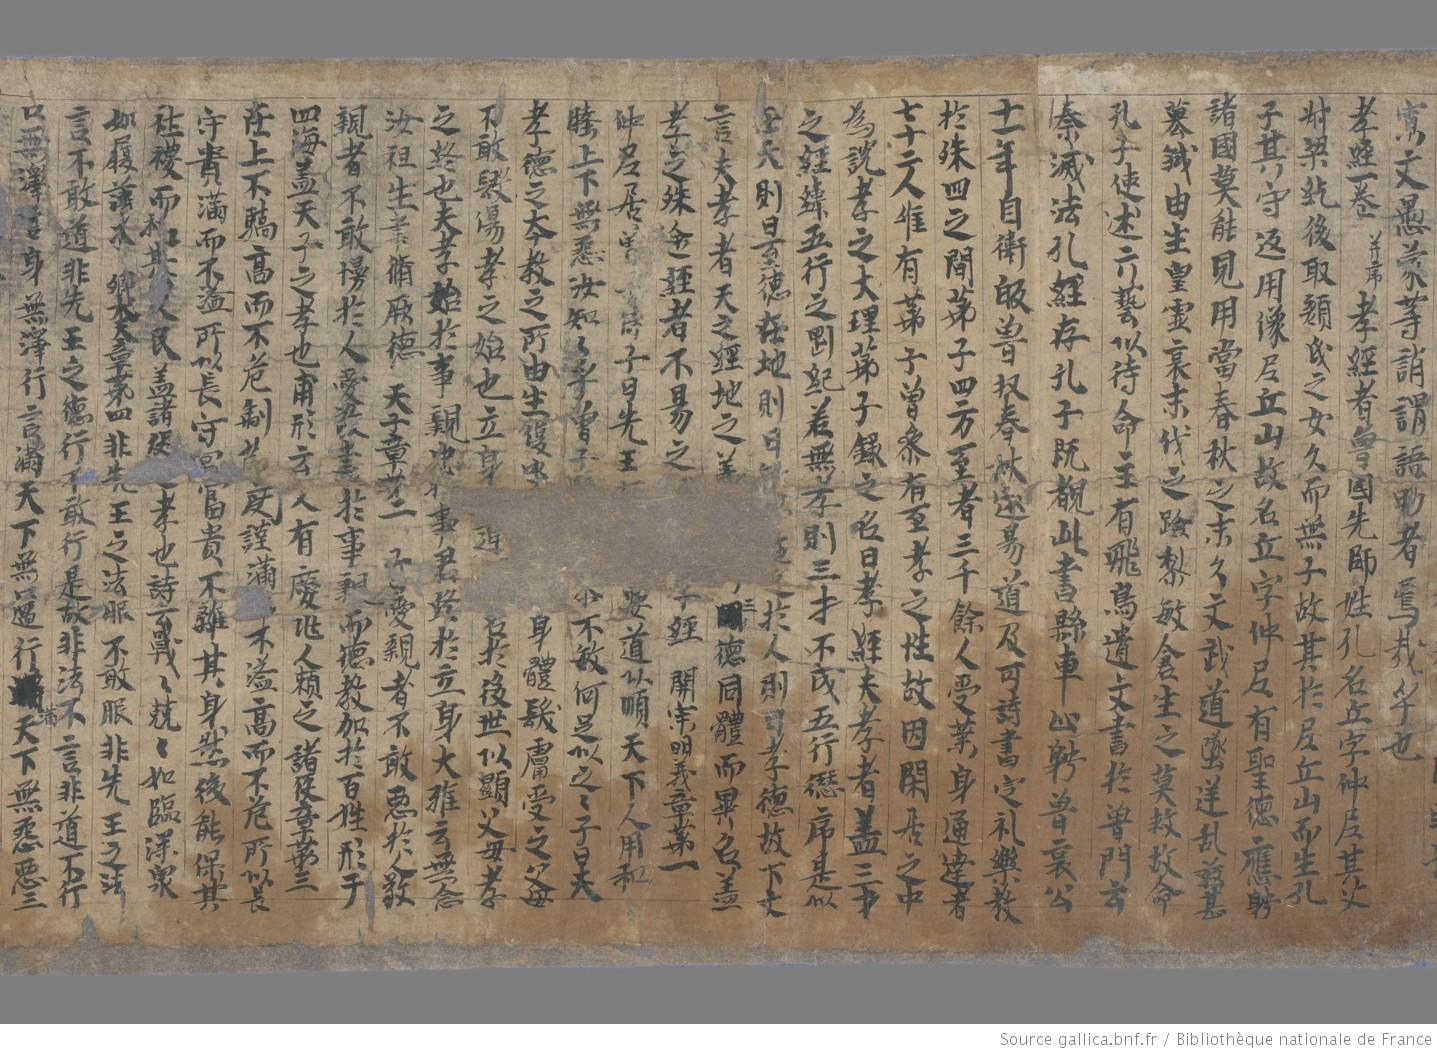 寓文愚蒙等誚謂語助者焉哉乎也
孝經一卷 并序 孝經者魯國先師姓孔名丘字仲尼其父
叔梁紇後取顏氏之女久而無子故其於尼丘山而生孔
子其守返用像尼丘山故名丘字仲尼有聖德應聘
諸國莫能見用當春秋之末久文武道墜逆亂茲甚
篡弒由生皇靈哀末代之黔黎敏倉生之莫救故命
孔子使述六藝以待命主有飛鳥遺文書於魯門云
秦滅法孔經存孔子既覩此書懸車止聘魯哀公
十一年自衛皈魯修春秋述易道及刊詩書定礼樂教
於洙四之間弟子四方至者三千餘人受業身通達者
七十二人惟有弟子曾參有至孝之性故因閑居之中
為說孝之大理弟子錄之名曰孝經夫孝者盖三才
之經緯五行之剛紀若無孝則三才不成五行僁序是以
在天則曰至德在地則曰於人則曰孝德故下文
言夫孝者天之經地之義三德同體而異名盖
孝之殊途經者不易之經 開宗明義章第一
仲尼居曾子侍子曰先王要道以順天下人用和
睦上下無惡汝知之乎曾子不敏何足以之之子曰夫
孝德之本教之所由生復坐身體髮膚受之父母
不敢毀傷孝之始也立身名於後世以顯父母孝
之終也夫孝始於事親中於事君終於立身大雅云無念
汝祖生聿脩厥德 天子章第二 子愛親者不敢惡於人敬
親者不敢慢於人愛敬盡於事親而德教加於百姓形于
四海盖天子之孝也甫形云人有慶兆人賴之諸侯章第三
在上不驕高而不危制節度謹滿不溢高而不危所以長
守貴滿而不溢所以長守富富貴不離其身然後能保其
社稷而和其人民盖諸侯之孝也詩云戰々兢々如臨深泉
如履薄冰 卿大夫章第四 非先王之法服不敢服非先王之法
言不敢道非先王之德行不敢行是故非法不言非道不行
口無擇言身無擇行言滿天下無過行滿天下無怨惡三
Source gallica.bnf.fr / Bibliothèque nationale de France